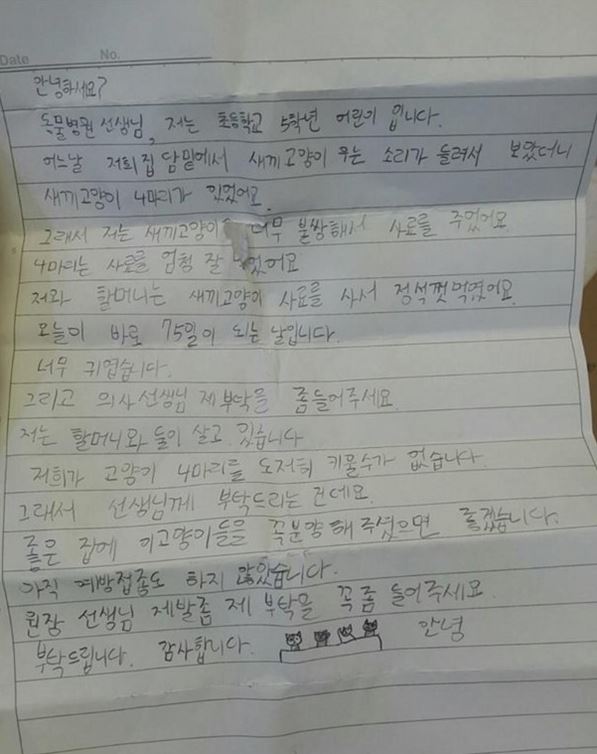 Date No.
안녕하세요?
동물병원 선생님, 저는 초등학교 5학년 어린이 입니다.
어느날 저희 집 담밑에서 새끼고양이 우는 소리가 들려서 보았더니
새끼고양이 4마리가 있었어요.
그래서 저는 새끼고양이 너무 불쌍해서 사료를 주었어요
4마리는 사료를 엄청 잘 었어요
저와 할머니는 새끼고양이 사료를 사서 정석껏먹였어요.
오늘이 바로 75일이 되는 날입니다.
너무 귀엽습니다.
그리고 의사선생님 제부탁을 좀들어주세요.
저는 할머니와 둘이 살고 있습니다
저희가 고양이 4마리를 도저히 키울수가 없습니다.
그래서 선생님께 부탁드리는 건데요.
좋은 집에 이고양이들을 꼭분양해주셨으면 좋겠습니다.
아직 예방접종도 하지 않았습니다.
원장 선생님 제발좀 제 부탁을 꼭좀 들어주세요.
부탁드립니다. 감사합니다. 안녕